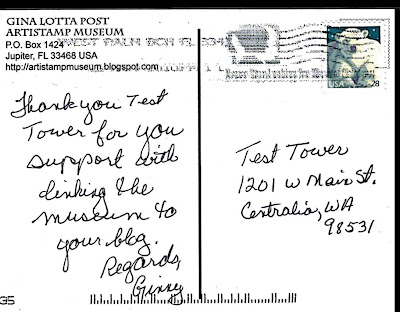 GINA LOTTA POST
ARTISTAMP MUSEUM
P.O. Box 1424
Jupiter, FL 33468 USA
http://artistampmuseum.blogspot.com
WEST PALM BCH FL 334
Thank you Test
Tower for you
support with
linking the
museum to
your blog.
Regards,
Ginny
Test Tower
1201 W Main St.
Centralia, WA
98531
USA
28
G5